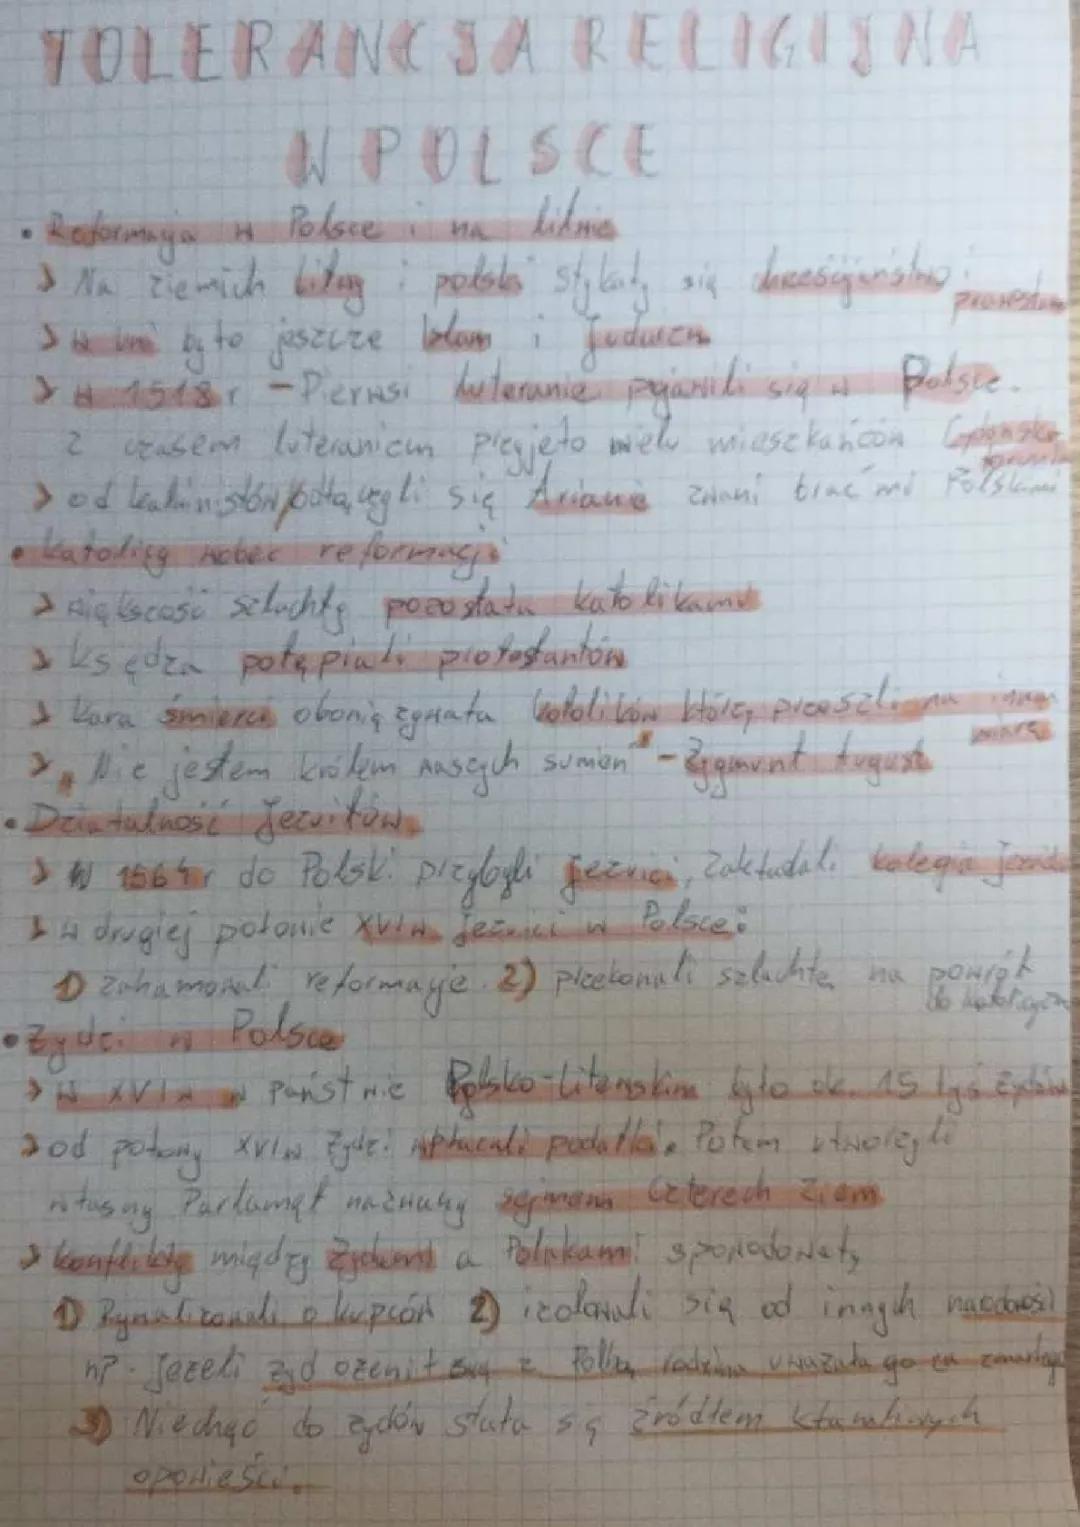 TOLERANCJA RELIGIJNA
W POLSCE
• Reformacja w Polsce i na Litwie
> Na ziemich Litwy i polski stykały się chrześcijaństwo i
> w uni było jeszcze Islam i Judaizm
> w 1518r - Pierwsi luteranie pojawili się w Polsce.
Z czasem luteranizm przyjeło wielu mieszkańców Gdańska
> od kalwinistów odłączyli się Arianie zwani braćmi Polskimi
• Katolicy wobec reformacji
> większość szlachty pozostała katolikami
> księdza potępiali protestantów
> Kara śmierci obowiązywała katolików którzy przeszli na inną
wiarę
> "Nie jestem królem waszych sumień" - Zygmunt August
• Działalność Jezuitów
> W 1564r do Polski przybyli jezuici, Zakładali kolegia
> w drugiej połowie XVIw. Jezuici w Polsce:
1) zahamowali reformacje. 2) przekonali szlachtę na powrót
do katolicyzm
• Żydzi w Polsce
> W XVIw w państwie Polsko-Litewskim było ok. 15 tyś żydów
> od połowy XVIw Żydzi wpłacali podatki. Potem utworzyli
własny Parlamęt nazwany sejmem Czterech Ziem
> konflikty między Żydami a Polakami spowodowały
1) Rywalizowali o kupców 2) izolowali się od innych narodowości
np. Jeżeli żyd ożenił się z Polką rodzina uważała go za zmarłego
3) Niechęć do żydów stała się źródłem kłamliwych
opowieści.